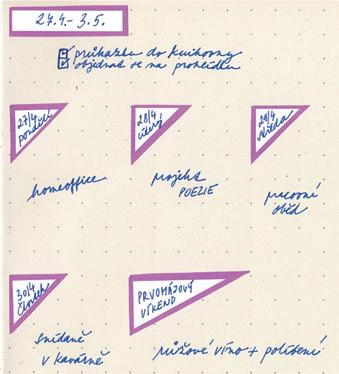 27.4. - 3.5.
průkazka do knihovny
objednat se na prohlídku
27/4
pondělí
28/4
úterý
29/4
středa
homeoffice
projekt
POEZIE
pracovní
oběd
30/4
čtvrtek
PRVOMÁJOVÝ
VÍKEND
snídaně
v kavárně
růžové víno + políbení